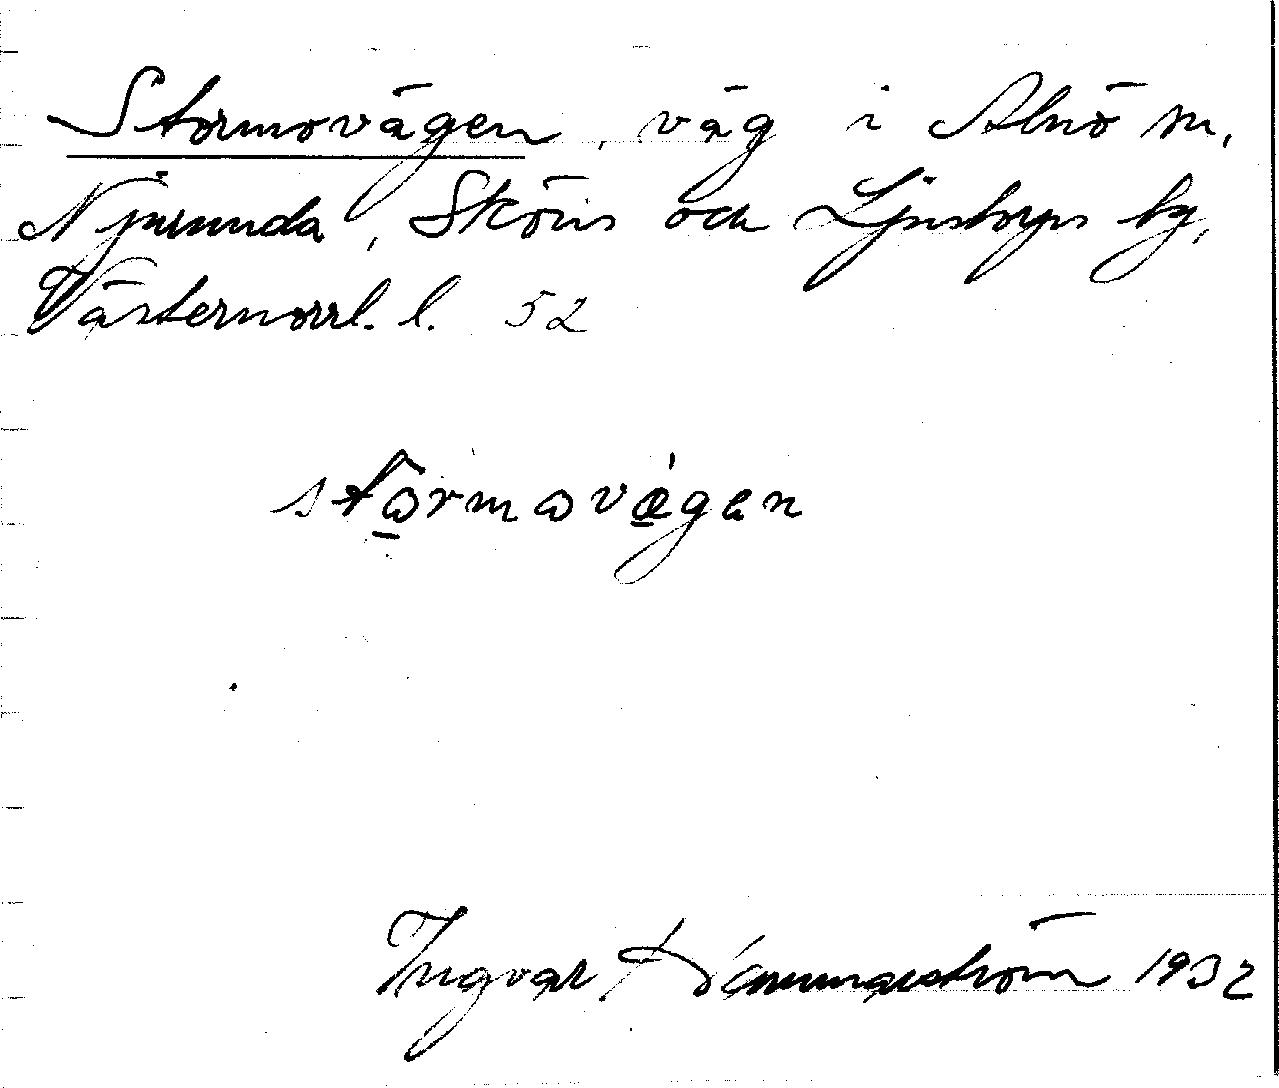 Stormovägen, väg i Alnö sn,
Njurunda, Sköns och Ljustorps tg,
Västernorrl. l. 52
stormovægen
Ingvar Hammarström 1932